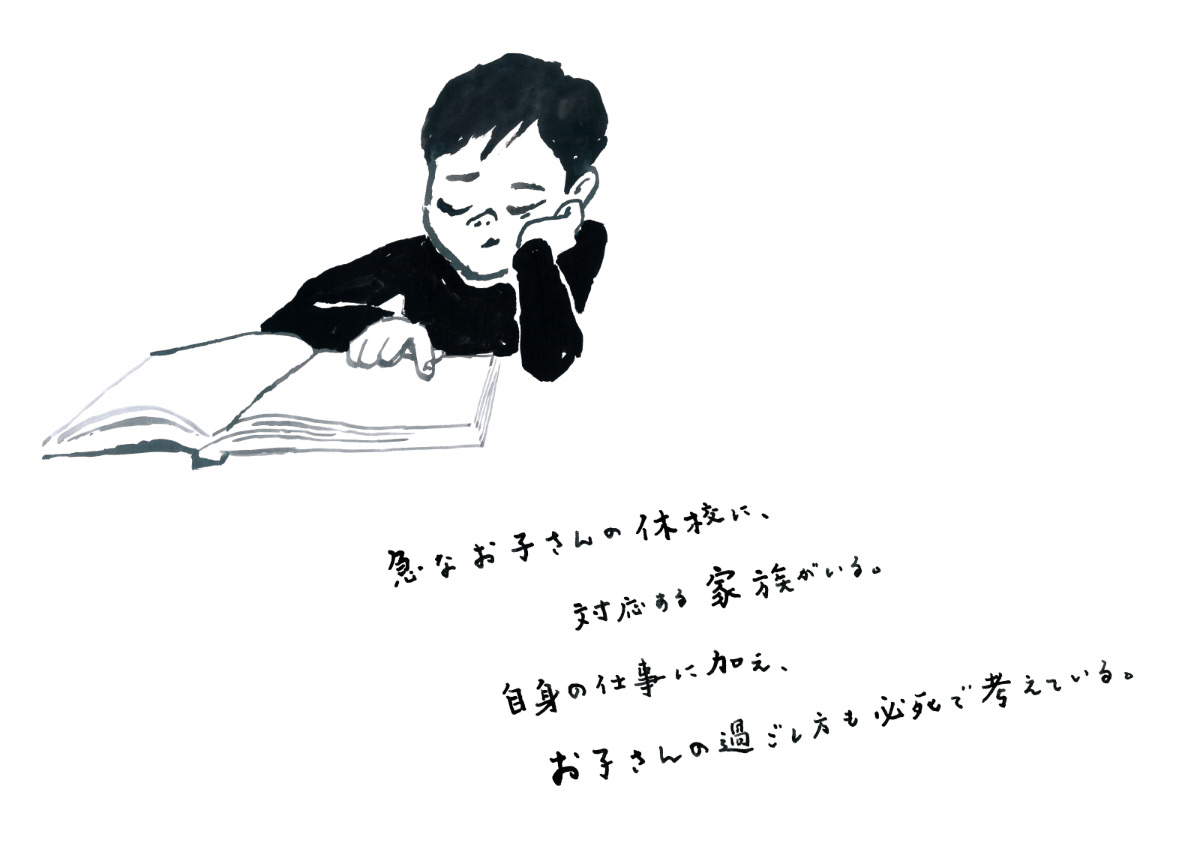 急なお子さんの休校に、
対応する家族がいる。
自身の仕事に加え、
お子さんの過ごし方も必死で考えている。